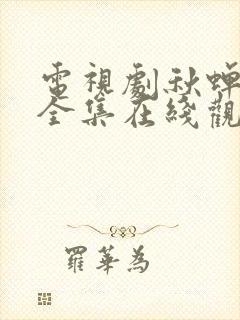 電視劇秋蟬
全集在綫觀
羅華為